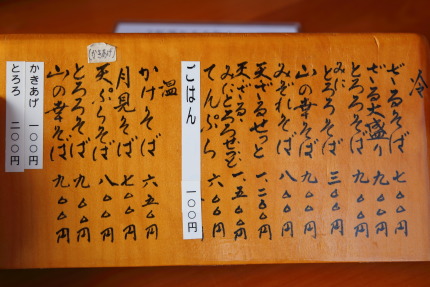 冷
ざるそば 七〇〇円
ざる大盛り 九〇〇円
とろろそば 九〇〇円
みにとろろ 三〇〇円
山の幸そば 九〇〇円
みぞれそば 八〇〇円
天ざるせっと 一、二〇〇円
天ざるみにとろろせっと 一、五〇〇円
てんぷら 六〇〇円
ごはん 一〇〇円
温
かけそば 六五〇円
月見そば 七〇〇円
(かきあげ)
天ぷらそば 八〇〇円
とろろそば 九〇〇円
山の幸そば 九〇〇円
かきあげ 一〇〇円
とろろ 二〇〇円